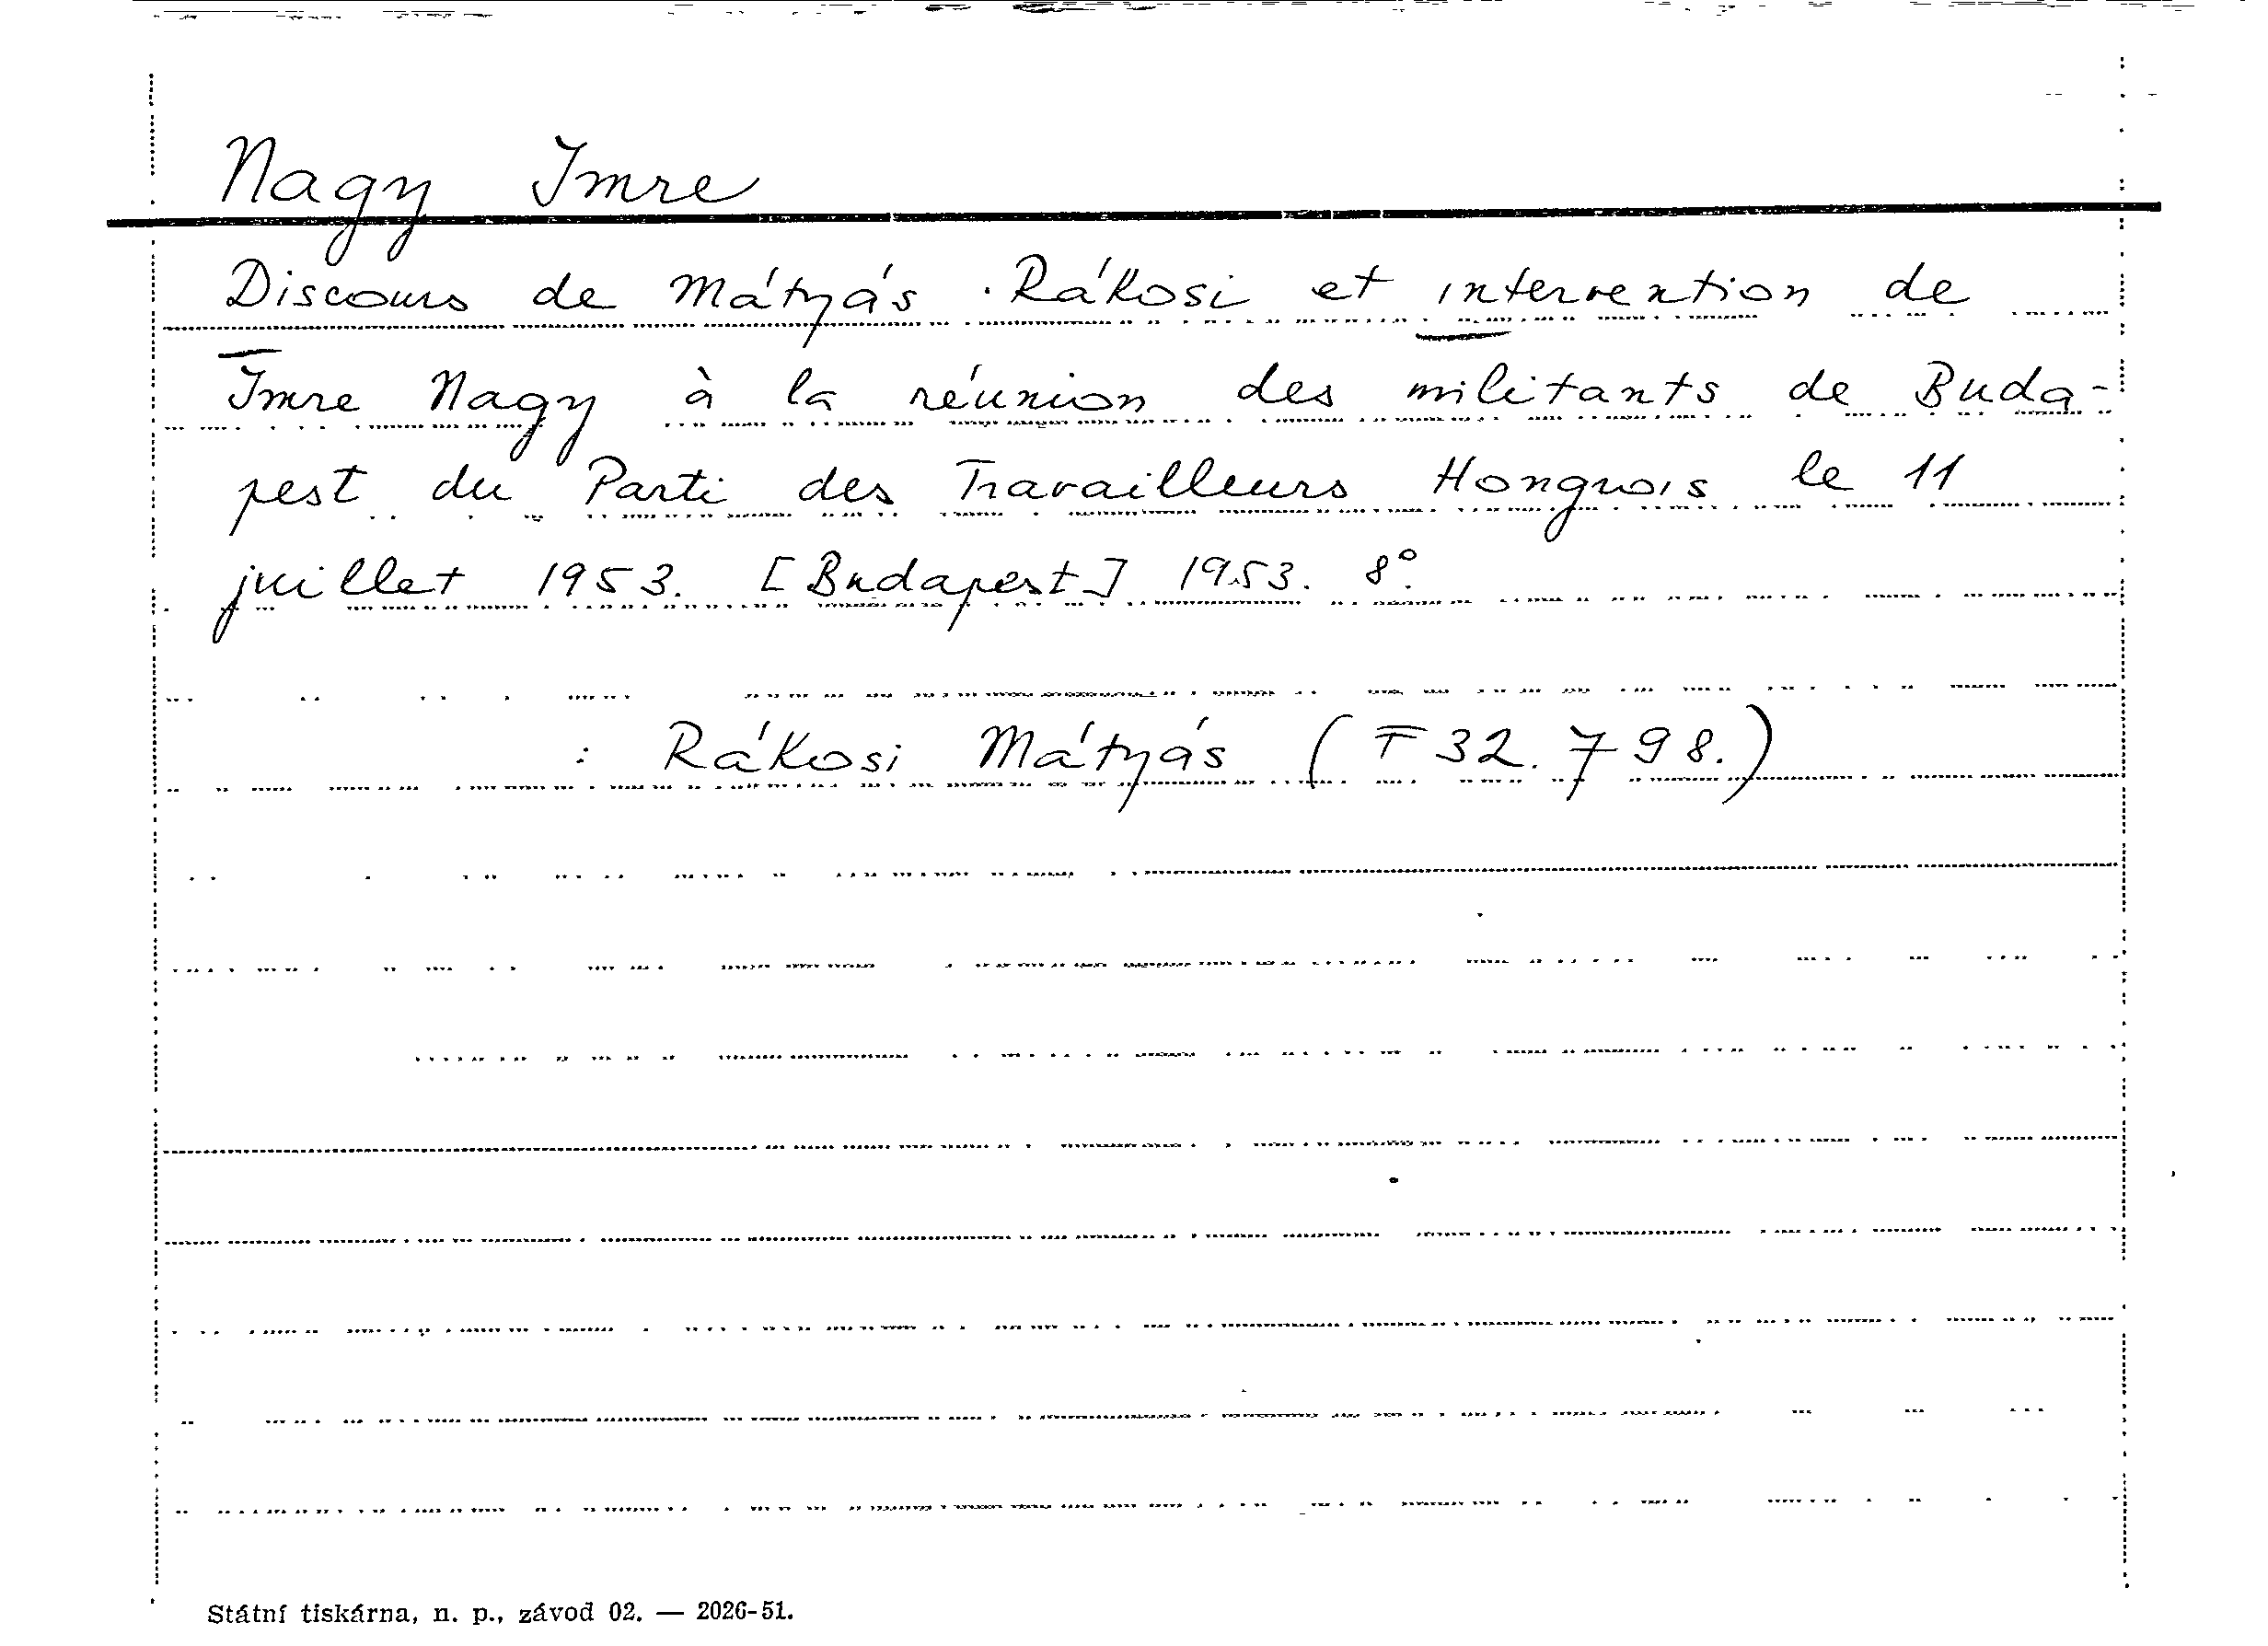 Nagy Imre
Discours de Mátyás Rákosi et intervention de
Imre Nagy à la réunion des militants de Buda-
pest du Parti des Travailleurs Hongrois le 11
juillet 1953. [Budapest] 1953. 8°.
: Rákosi Mátyás (T 32.798.)
Státní tiskárna, n. p., závod 02. — 2026-51.